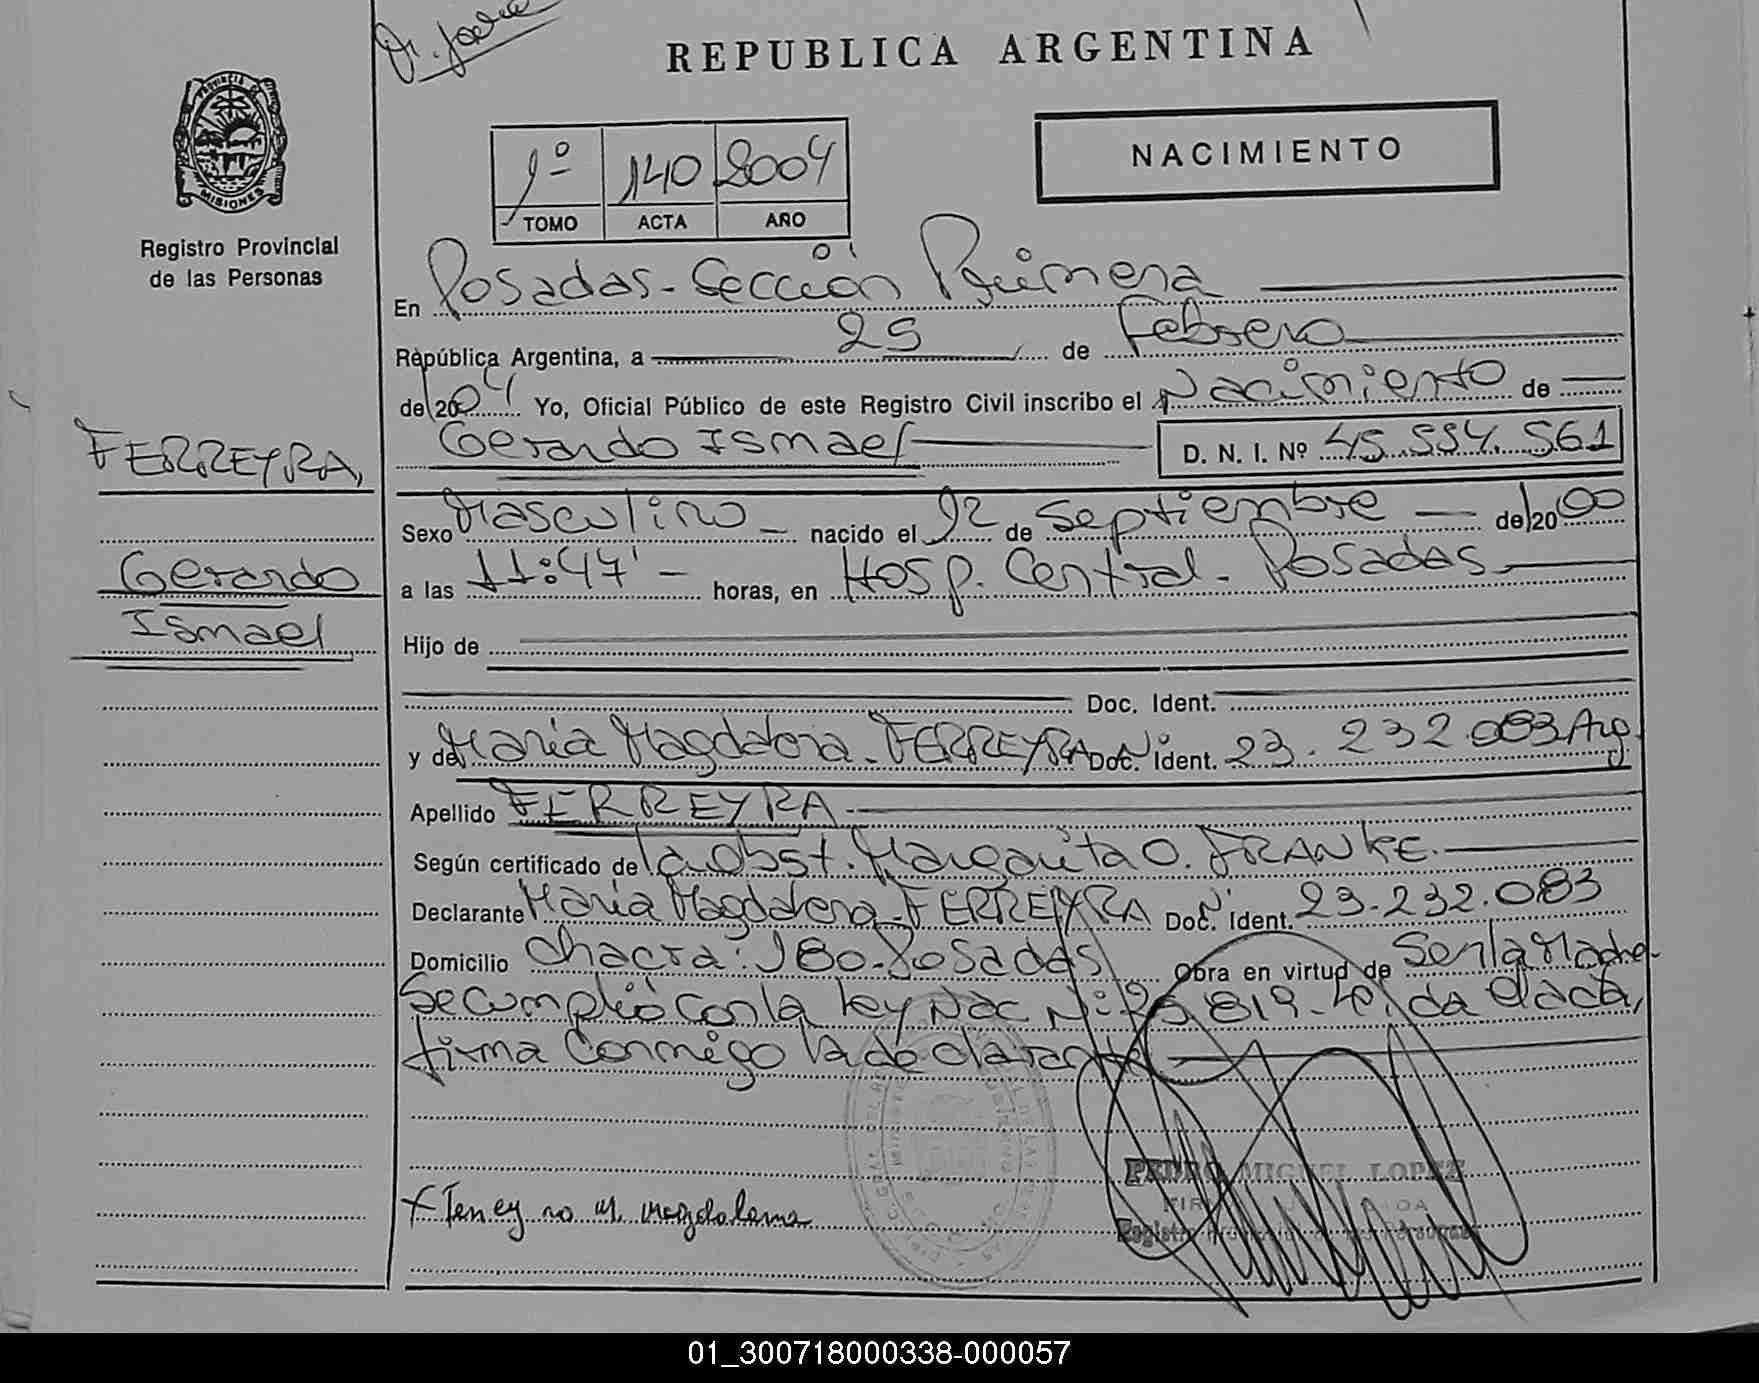 REPUBLICA ARGENTINA
PROVINCIA DE
MISIONES
Registro Provincial
de las Personas
1º 140 2004
TOMO ACTA AÑO
NACIMIENTO
En Posadas - Sección Primera
República Argentina, a 25 de Febrero
de 2004 Yo, Oficial Público de este Registro Civil inscribo el Nacimiento de
Gerardo Ismael D. N. I. Nº 45.554.561
FERREYRA,
Gerardo
Ismael
Sexo Masculino nacido el 12 de Septiembre de 2000
a las 11:47' horas, en Hosp. Central - Posadas
Hijo de
Doc. Ident.
y de María Magdalena FERREYRA Doc. Nº Ident. 23.232.083 Arg
Apellido FERREYRA
Según certificado de la obst. Margarita O. FRANKE.
Declarante María Magdalena FERREYRA Doc. Nº Ident. 23.232.083
Domicilio Chacra: 180 - Posadas Obra en virtud de Ser la Madre
Se cumplió con la Ley Nac Nº: 25.819 - da el acta,
firma conmigo la declarante
PEDRO MIGUEL LOPEZ
Registro Provincial de las Personas
01_300718000338-000057